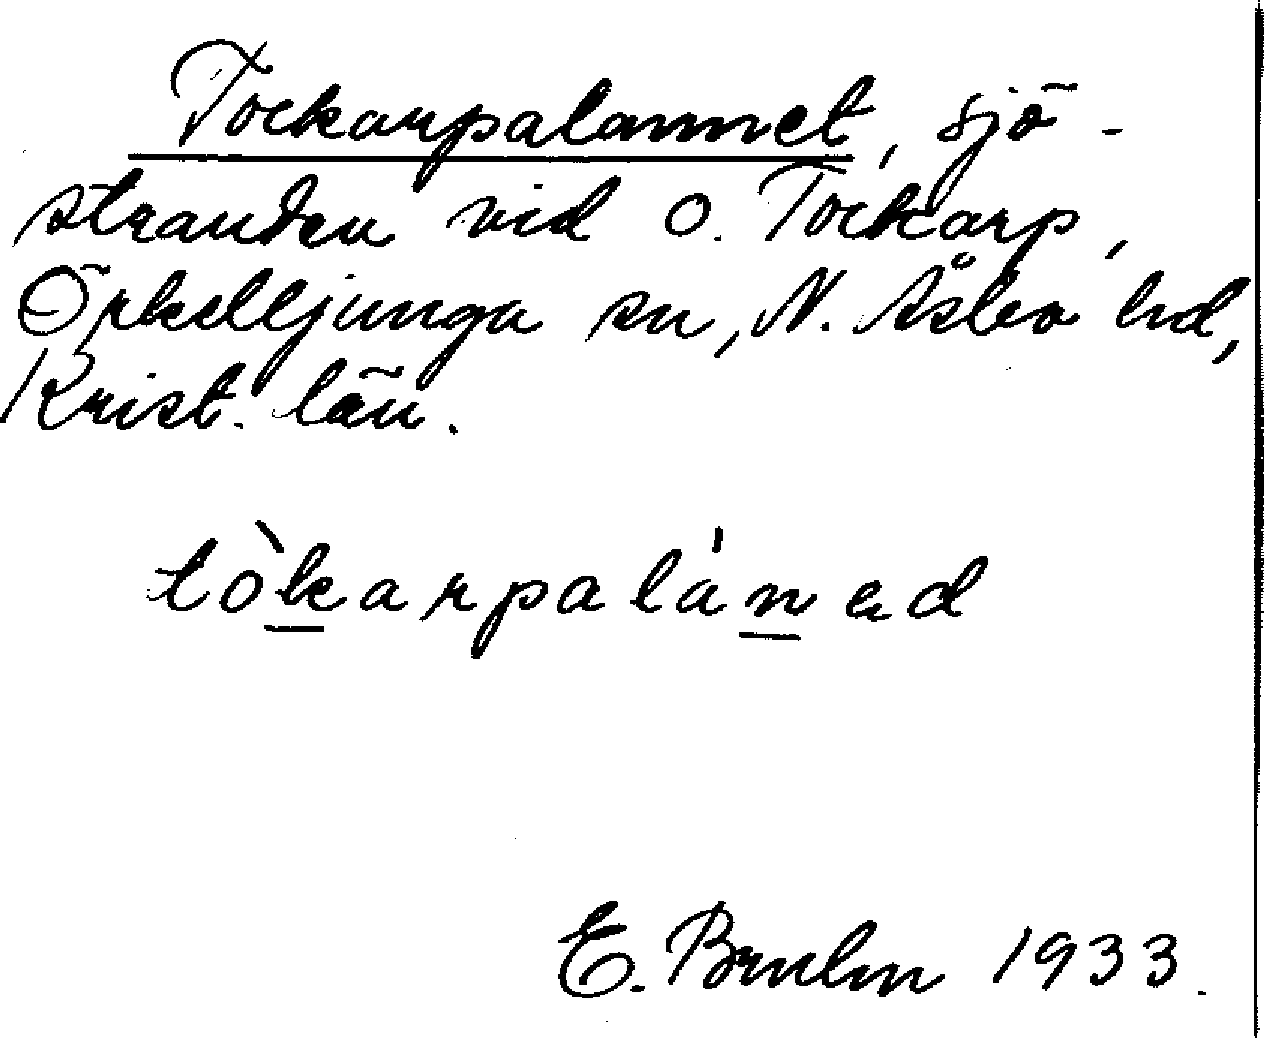 Tockarpalannet, sjö-
stranden vid O. Tockarp,
Örkelljunga sn, N. Åsbo hd,
Krist. län.
tòkarpalánəd
E. Bruhn 1933.